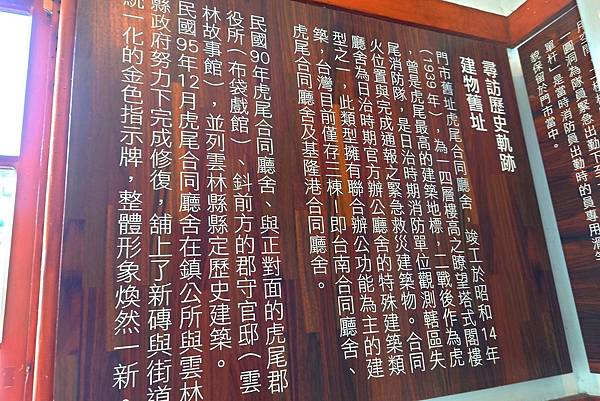 尋訪歷史軌跡
建物舊址
門市舊址虎尾合同廳舍，竣工於昭和14年
（1939年），為一四層樓高之瞭望塔式閣樓
，曾是虎尾最高的建築地標，二戰後作為虎
尾消防隊，是日治時期消防單位觀測轄區失
火位置與完成通報之緊急救災建築物。合同
廳舍為日治時期官方辦公廳舍的特殊建築類
型之一，此類型擁有聯合辦公功能為主的建
築，台灣目前僅存三棟，即台南合同廳舍、
虎尾合同廳舍及基隆港合同廳舍。
民國90年虎尾合同廳舍、與正對面的虎尾郡
役所（布袋戲館）、斜前方的郡守官邸（雲
林故事館），並列雲林縣縣定歷史建築。
民國95年12月虎尾合同廳舍在鎮公所與雲林
縣政府努力下完成修復，舖上了新磚與街道
統一化的金色指示牌，整體形象煥然一新。
一圓洞為隊員緊急出勤下至一
單杆」是當時消防員出勤時的員專用滑
貌保留於門市當中。